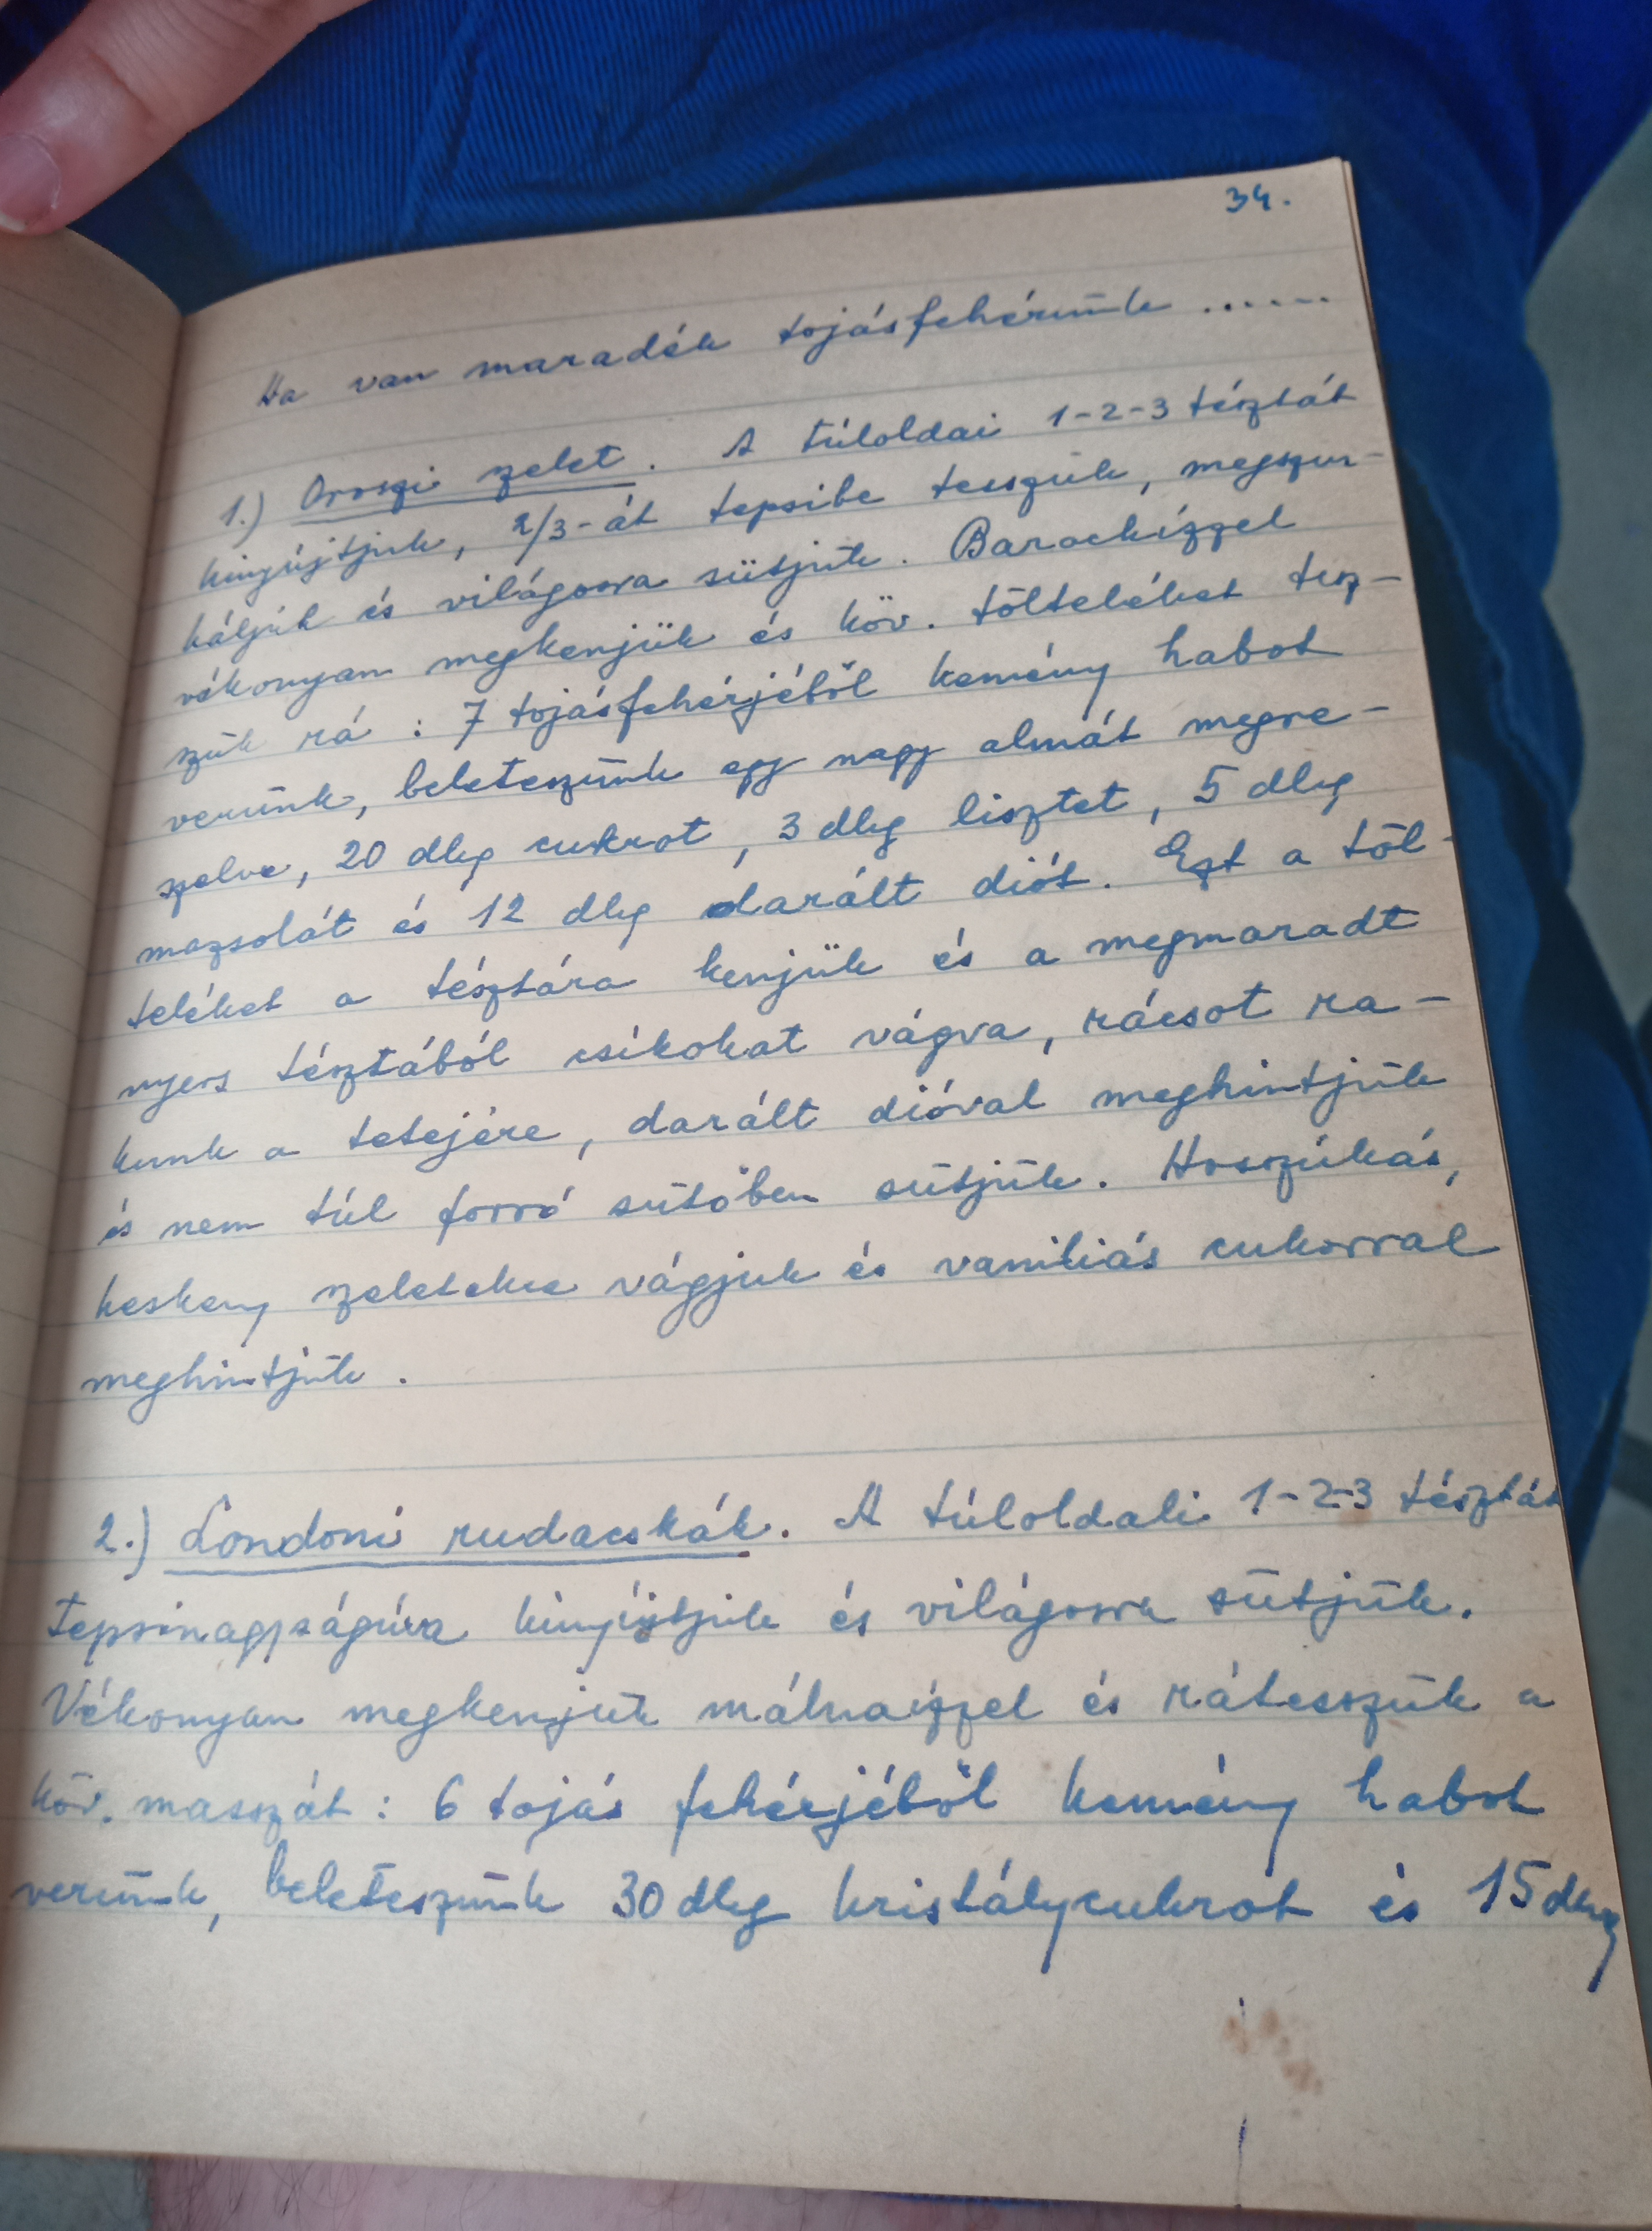 34.
Ha van maradék tojásfehérünk ......
1.) Oroszi szelet. A túloldai 1-2-3 tésztát
kinyújtjuk, 2/3-át tepsibe tesszük, megszur-
káljuk és világosra sütjük. Barackízzel
vékonyan megkenjük és köv. tölteléket tesz-
szük rá : 7 tojásfehérjéből kemény habot
verünk, beleteszünk egy nagy almát megre-
szelve, 20 dkg cukrot, 3 dkg lisztet, 5 dkg
mazsolát és 12 dkg darált diót. Ezt a töl-
teléket a tésztára kenjük és a megmaradt
nyers tésztából csíkokat vágva, rácsot ra-
kunk a tetejére, darált dióval meghintjük
és nem túl forró sütőben sütjük. Hosszúkás,
keskeny szeletekre vágjuk és vaniliás cukorral
meghintjük.
2.) Londoni rudacskák. A túloldali 1-2-3 tésztát
tepsinagyságúra kinyújtjuk és világosra sütjük.
Vékonyan megkenjük málnaízzel és rátesszük a
köv. masszát : 6 tojás fehérjéből kemény habot
verünk, beleteszünk 30 dkg kristálycukrot és 15 dkg